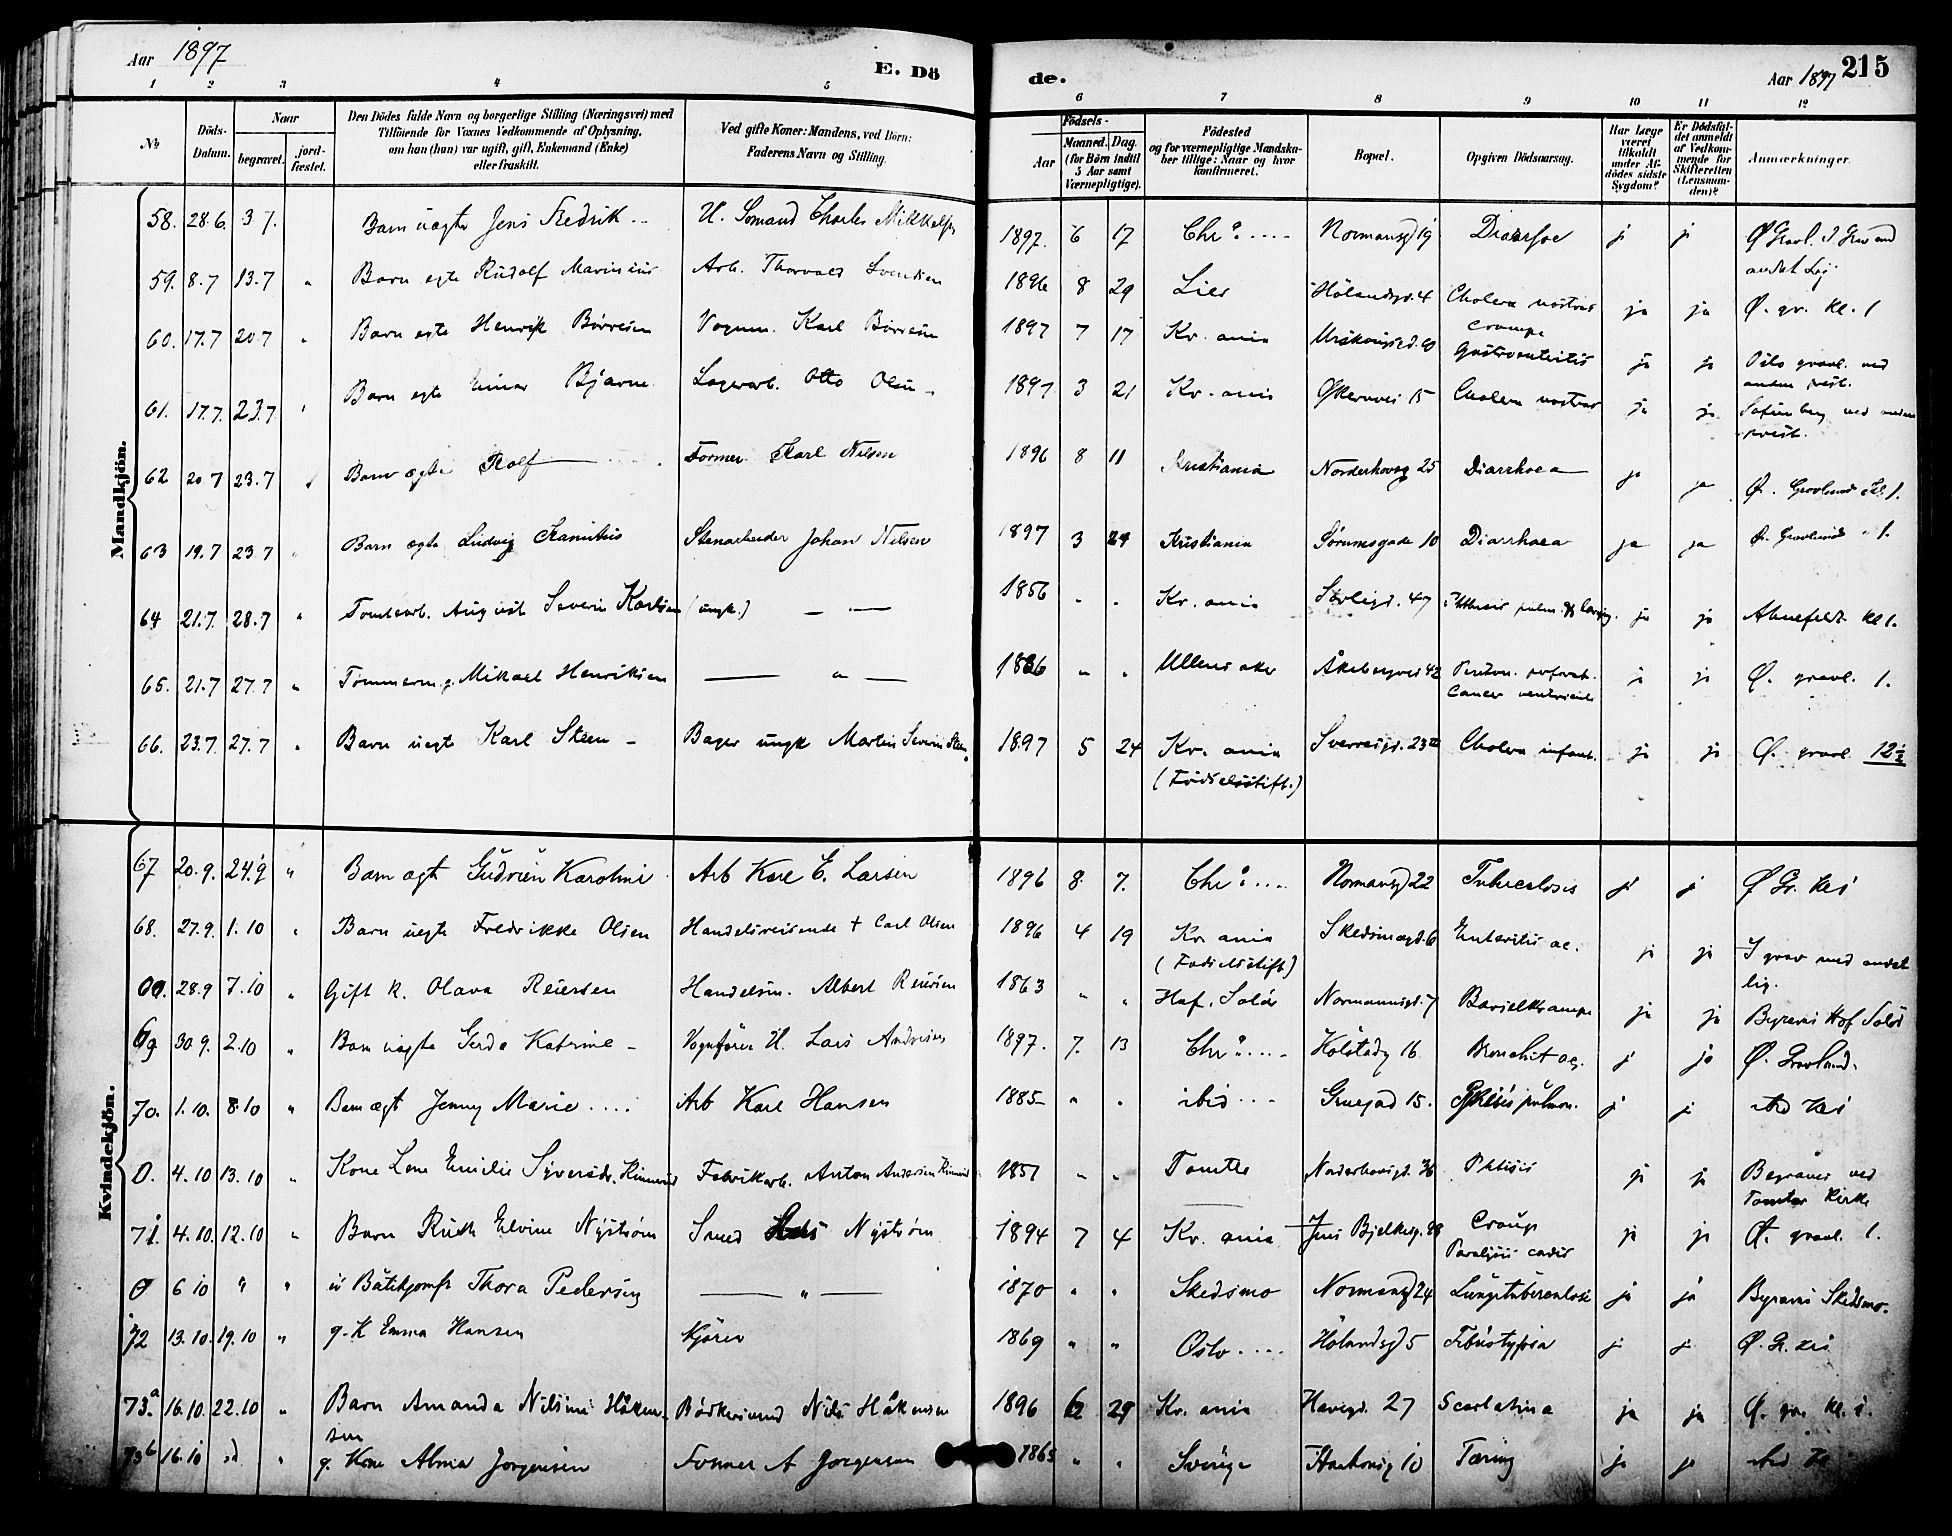 Aar 1897 E. Dö
de. Aar 1897 215
1 2 3 4 5 6 7 8 9 10 11 12
No
Döds-Datum.
Naar
begravet. jordfæstet.
Den Dödes fulde Navn og borgerlige Stilling (Næringsvei) med
Tilföiende for Voxnes Vedkommende af Oplysning,
om han (hun) var ugift, gift, Enkemand (Enke)
eller fraskilt.
Ved gifte Koner: Mandens, ved Börn:
Faderens Navn og Stilling.
Födsels-
Aar Maaned. Dag.
(for Börn indtil
5 Aar samt
Værnepligtige).
Födested
og for værnepligtige Mandska-
ber tillige: Naar og hvor
konfirmeret.
Bopæl.
Opgiven Dödsaarsag.
Har Læge
været
tilkaldt
under Af-
dödes sidste
Sygdom?
Er Dödsfal-
det anmeldt
af Vedkom-
mende for
Skifteretten
(Lensman-
den)?
Anmærkninger.
Mandkjön.
58. 28.6. 3 7. Barn uægte Jens Fredrik U. Sömand Charles 1897. 6 17 Chr.a Normansgd 19 Diarrhoe j j Ø Gravl. I Grav
andet Lig.
59. 8.7 13.7 " Barn egte Rudolf Marinius Arb. Thorvald Svendsen 1896 8 29 Lier Hölandsgd. 4 Cholera nostras ja ja Ø. gr. Kl. 1
60. 17.7 20.7 " Barn egte Henrik Börresen Vognm. Karl Börresen 1897 7 17 Kr. ania Crampe
Gastroenteritis ja ja Oslo gravl. ved
anden prest.
61. 17.7. 23.7. " Barn egte Einar Bjarne Lagerarb. Otto Olsen 1897 3 21 Kr. ania Økernvei 15 Cholera nostras ja ja Sofienberg ved anden
prest.
62 20 7 23.7 Barn ægte Rolf Former Karl Nilsen 1896 8 11 Kristiania Norderhovsg 25 Diarrhoea ja ja Ø. Gravlund Kl 1.
63 19.7 23.7 " Barn ægte Ludvig Stenarbeider Johan Nilsen 1897 3 24 Kristiania Sörumsgade 10 Diarrhoea ja ja Ø. Gravlund " 1.
64 21.7. 28.7 " Tomtearb. August Severin Karlsen (ungk.) — " — 1856 " " Kr. ania Sörligd. 47 Phthisis pulm. & laryng. ja ja Ahnefeldt Kl 1.
65. 21.7 27.7 " Tömmerm. g. Mikael Henriksen — " — 1836 " " Ullensaker Åkebergvei 42 Periton. perforat.
Cancer ventriculi j ja Ø. gravl. 1.
66. 23.7. 27.7 " Barn uegte Karl Steen Bager ungk Martin Severin Steen 1897 5 24 Kr. ania
(Fødselsstift.) Sverresgd. 23 III Cholera infant. ja ja Ø. gravl. 12½
Kvindekjön.
67 20.9. 24.9 " Barn ægt Gudrun Karoline Arb Karl E. Larsen 1896 8. 7. Chr.a Normansgd 22 Tuberculosis j j Ø Gr. Kl 1
68. 27.9. 1.10 " Barn uegte Fredrikke Olsen Handelsreisende + Carl Olsen 1896 4 19 Kr. ania
(Fødselsstift) Skedsmogd. 6 Enteritis ac. j ja I grav med andet
lig.
28.9 7.10 " Gift k. Olava Reiersen Handelsm. Albert Reiersen 1863 " " Hof. Solør Normannsgd. 7 Barselkrampe ja ja Begraves Hof Solør
69 30.9. 2.10 " Barn uægte Gerda Katrine Vognfører U. Lars Andersen 1897. 7. 13 Chr.a Kölstadg 16 Bronchit ac. j ja Ø. Gravlund.
70. 1.10. 8.10 " Barn ægt Jenny Marie Arb Karl Hansen 1885 " " ibid Gruegad 15. Phtisis pulmon. j j ibid Kl 1
0. 4.10 13.10 " Kone Lene Emilie Syversdr. Fabrikarb. Anton Andersen 1851 " " Tomter Norderhovsgd. 36 Phtisis ja ja Begraves ved
Tomter Kirke
71. 4.10. 12.10 " Barn Ruth Elvine Nyström Smed Nyström 1894 7 4 Kr. ania Jens Bjelkesg. 28 Croup
Paralysis cordis ja ja Ø. gravl. 1.
0 6 10 " " Thora Pedersen — " — 1870 " " Skedsmo Normansgd 24 Lungetuberculose ja ja Begraves Skedsmo.
72 13.10. 19.10 " g. K Emma Hansen Kjörer 1869 " " Oslo Hölandsgd 5 Febris typhoidea j j Ø. Gr. Kl 1
73.a 16.10. 22.10 " Barn Amanda Nilsine Håken-
sen Bödkersvend Nils Håkensen 1896 6 29 Kr. ania Havegd. 27 Scarlatina ja ja Ø. gr. Kl. 1.
73b 16.10 " g. Kone Alma Jorgensen Former A Jorgensen 1865 " " Sverige 10 Tæring ja ja ibid